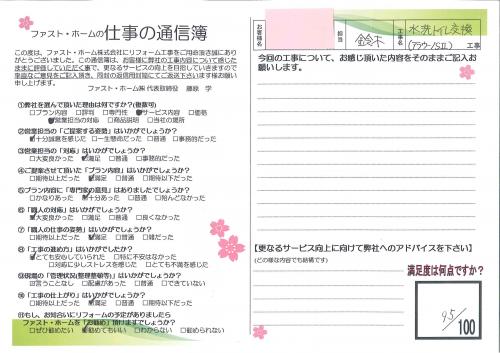 ファスト・ホームの仕事の通信簿
この度は、ファスト・ホーム株式会社にリフォーム工事をご用命頂き誠にあり
がとうございました。この通信簿は、お客様に弊社の工事内容について感じた
ままに評価していただく事で、更なるサービスの向上を目指していきますので
率直なご意見をご記入頂き、同封の返信用封筒にてご返送下さいます様お願い
申し上げます。
ファスト・ホーム㈱ 代表取締役 藤綾 学
①弊社を選んで頂いた理由は何ですか?(複数可)
□プラン内容 □評判 □専門性 ☑サービス内容 □価格
☑営業担当の対応 □商品説明 □当社の場所
②営業担当の「ご提案する姿勢」はいかがでしょうか?
☑十分誠意を感じた □一生懸命だった □普通 □事務的だった
③営業担当の「対応」はいかがでしょうか?
□大変良かった ☑満足 □普通 □事務的だった
④ご提案させて頂いた「プラン内容」はいかがでしょうか?
□期待以上だった ☑満足 □普通 □期待以下だった
⑤プラン内容に「専門家の意見」はありましたでしょうか?
□かなりあった ☑十分あった □普通 □殆んどなかった
⑥「職人の対応」はいかがでしょうか?
☑大変良かった □満足 □普通 □良くなかった
⑦「職人の仕事の姿勢」はいかがでしょうか?
□期待以上だった ☑満足 □普通 □雑だった
⑧「工事の進め方」はいかがでしたか?
☑とても安心していられた □特に不安はなかった
□対応に少しストレスを感じた □とても不満を感じた
⑨現場の「管理状況(整理整頓等)」はいかがでしょうか?
☑言うことなし □配慮があった □普通 □できていない
⑩「工事の仕上がり」はいかがでしょうか?
□期待以上だった ☑満足 □普通 □期待以下だった
⑪もし、お知合いにリフォームの予定がありましたら
ファスト・ホームを「お勧め」頂けますでしょうか?
□ぜひ勧めたい ☑勧めてもいい □わからない □勧められない
お客様名
担当
鈴木
工事名
水洗トイレ交換
工事
今回の工事について、お感じ頂いた内容をそのままご記入お
願いします。
【更なるサービス向上に向けて弊社へのアドバイスを下さい】
(どの様な内容でも結構です)
満足度は何点ですか?
95/100